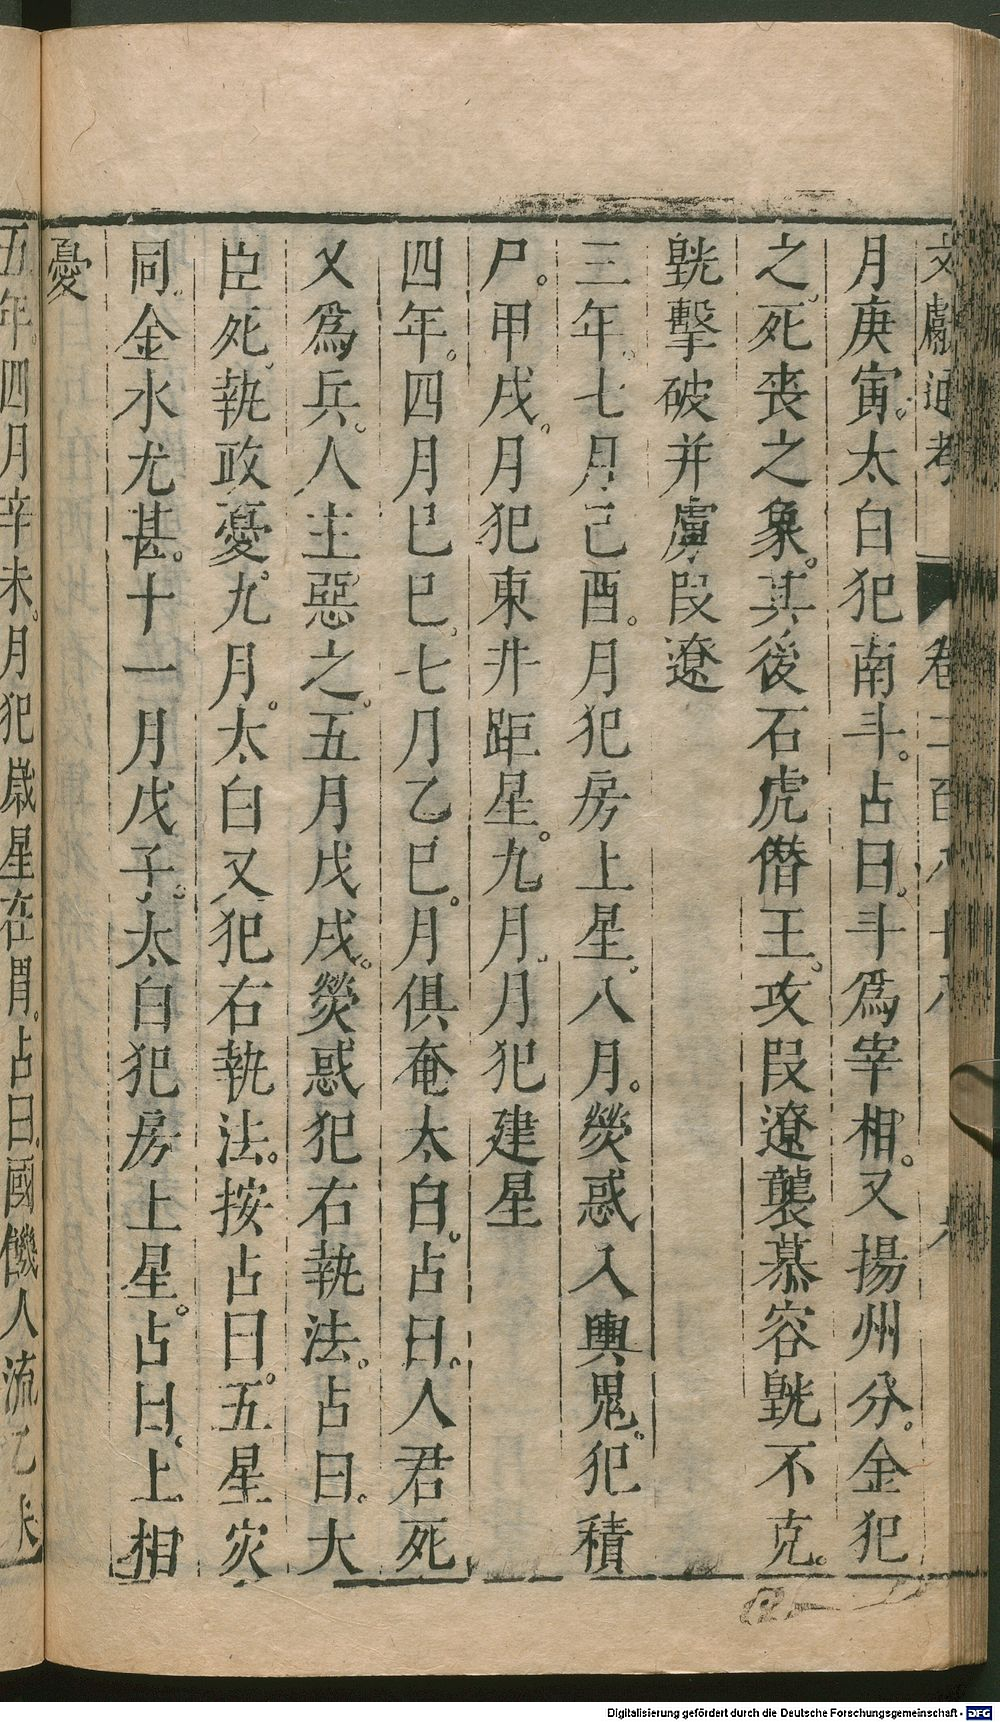 文獻通考 卷二百八十八 八
月庚寅。太白犯南斗。占曰。斗爲宰相。又揚州分。金犯
之。死喪之象。其後石虎僭王。攻段遼襲慕容皝不克。
皝擊破并虜段遼
三年。七月己酉。月犯房上星。八月。熒惑入輿鬼。犯積
尸。甲戌。月犯東井距星。九月。月犯建星
四年。四月巳巳。七月乙巳。月俱奄太白。占曰。人君死
又爲兵。人主惡之。五月戊戌。熒惑犯右執法。占曰。大
臣死。執政憂。九月。太白又犯右執法。按占曰。五星災
同。金水尤甚。十一月戊子。太白犯房上星。占曰。上相
憂
五年。四月辛未。月犯歲星在胃。占曰。國饑人流乙未
Digitalisierung gefördert durch die Deutsche Forschungsgemeinschaft - DFG